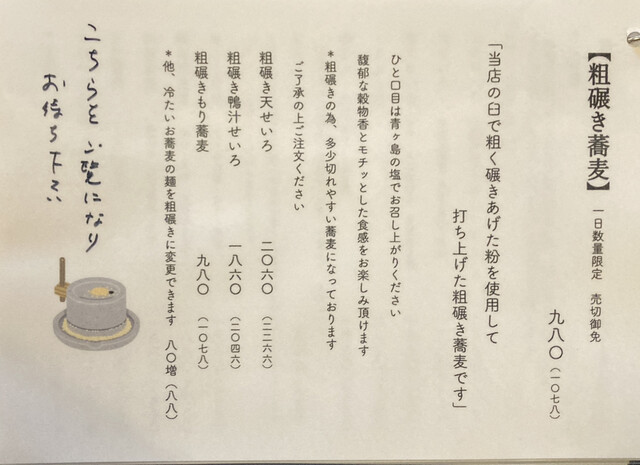 【粗碾き蕎麦】 一日数量限定 売切御免
九八〇(一〇七八)
「当店の臼で粗く碾きあげた粉を使用して
打ち上げた粗碾き蕎麦です」
ひと口目は青ヶ島の塩でお召し上がりください
馥郁な穀物香とモチッとした食感をお楽しみ頂けます
*粗碾きの為、多少切れやすい蕎麦になっております
ご了承の上ご注文ください
粗碾き天せいろ 二〇六〇(二二六六)
粗碾き鴨汁せいろ 一八六〇(二〇四六)
粗碾きもり蕎麦 九八〇(一〇七八)
*他、冷たいお蕎麦の麺を粗碾きに変更できます 八〇増(八八)
こちらをご覧になり
お待ち下さい